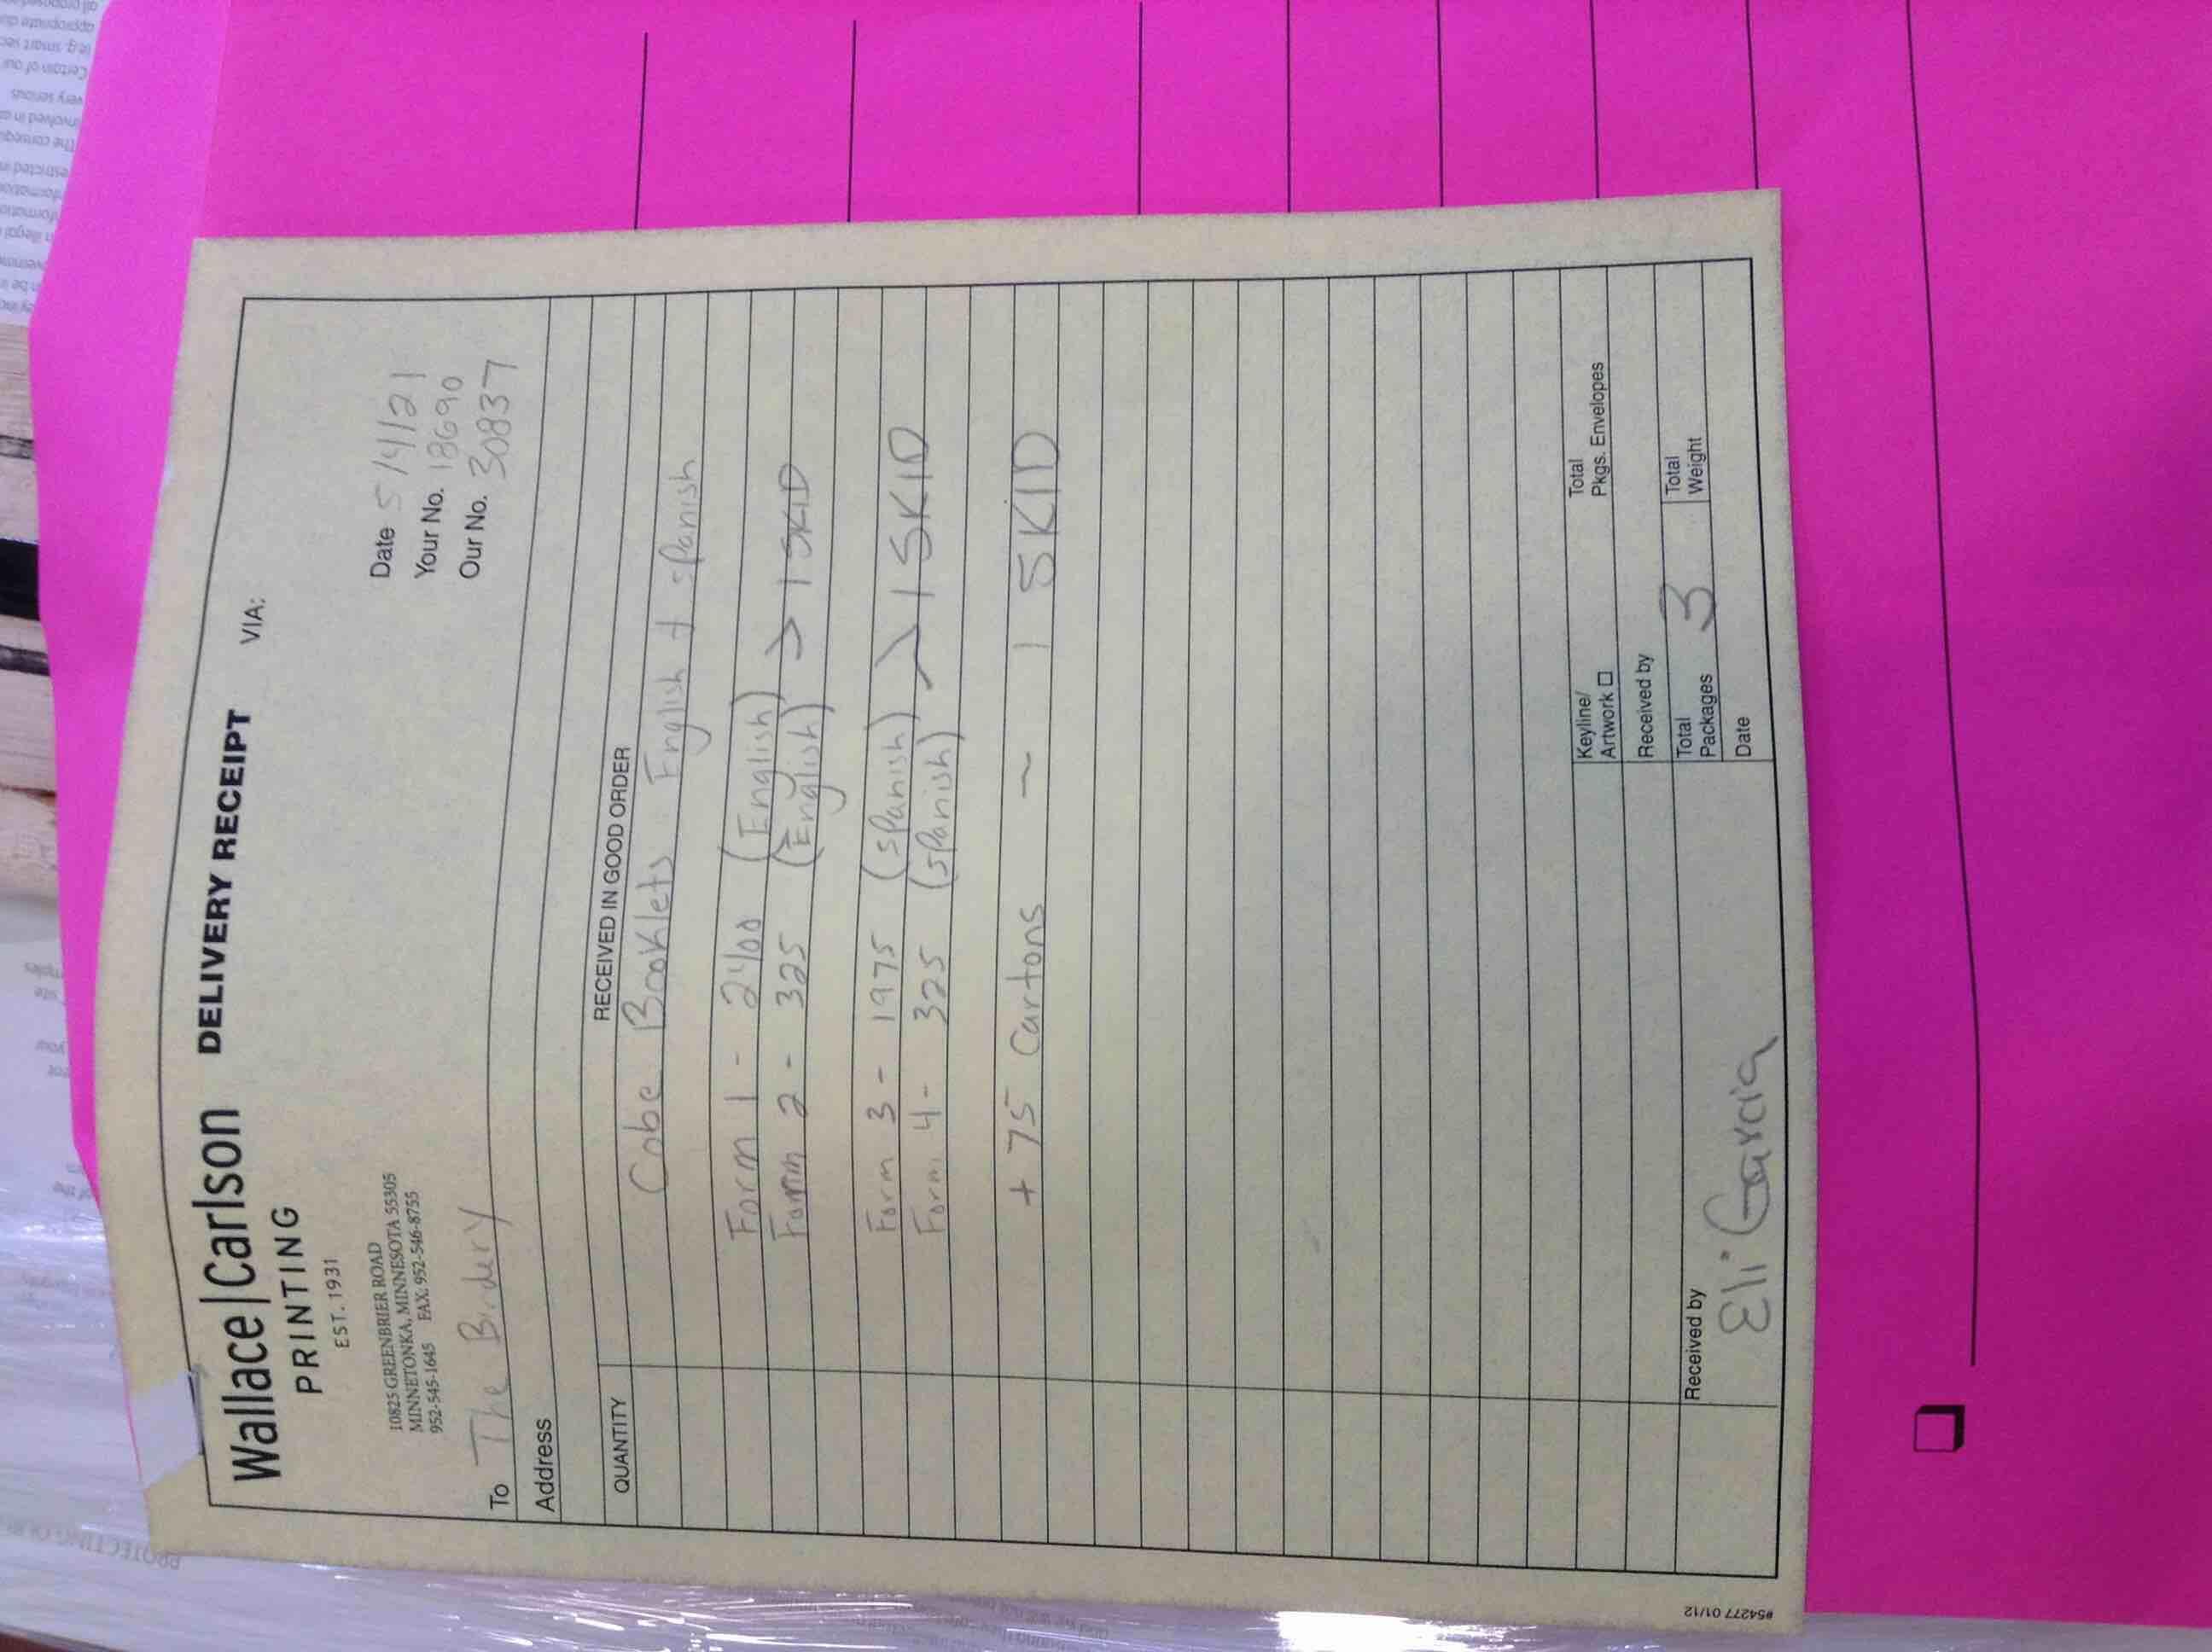 Wallace|Carlson DELIVERY RECEIPT VIA:
PRINTING
EST. 1931
10825 GREENBRIER ROAD
MINNETONKA, MINNESOTA 55305
952-545-1645 FAX: 952-546-8755
Date 5/4/21
Your No. 18690
Our No. 30837
To The Bindery
Address
QUANTITY RECEIVED IN GOOD ORDER
Cobe Booklets English + Spanish
Form 1 - 2400 (English)
Form 2 - 325 (English) > 1 SKID
Form 3 - 1975 (Spanish)
Form 4 - 325 (Spanish) > 1 SKID
+ 75 Cartons - 1 SKID
Keyline/
Artwork
Total
Pkgs. Envelopes
Received by
Total
Packages 3
Total
Weight
Date
Received by
Eli Garcia
#54277 01/12
PROTECTING OUR
very serious